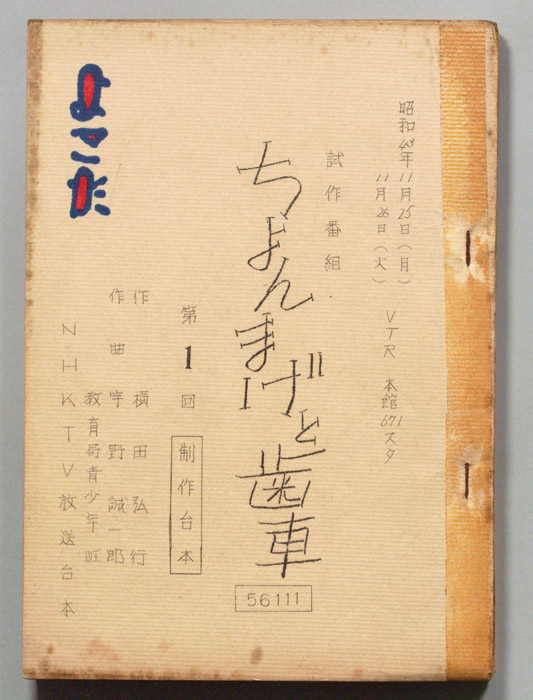 昭和43年11月25日(月) VTR 本館671スタ
11月26日(火)
試作番組
ちょんまげと歯車
56111
第1回 制作台本
作 横田弘行
作曲 宇野誠一郎
教育局青少年班
NHKTV放送台本
よこた